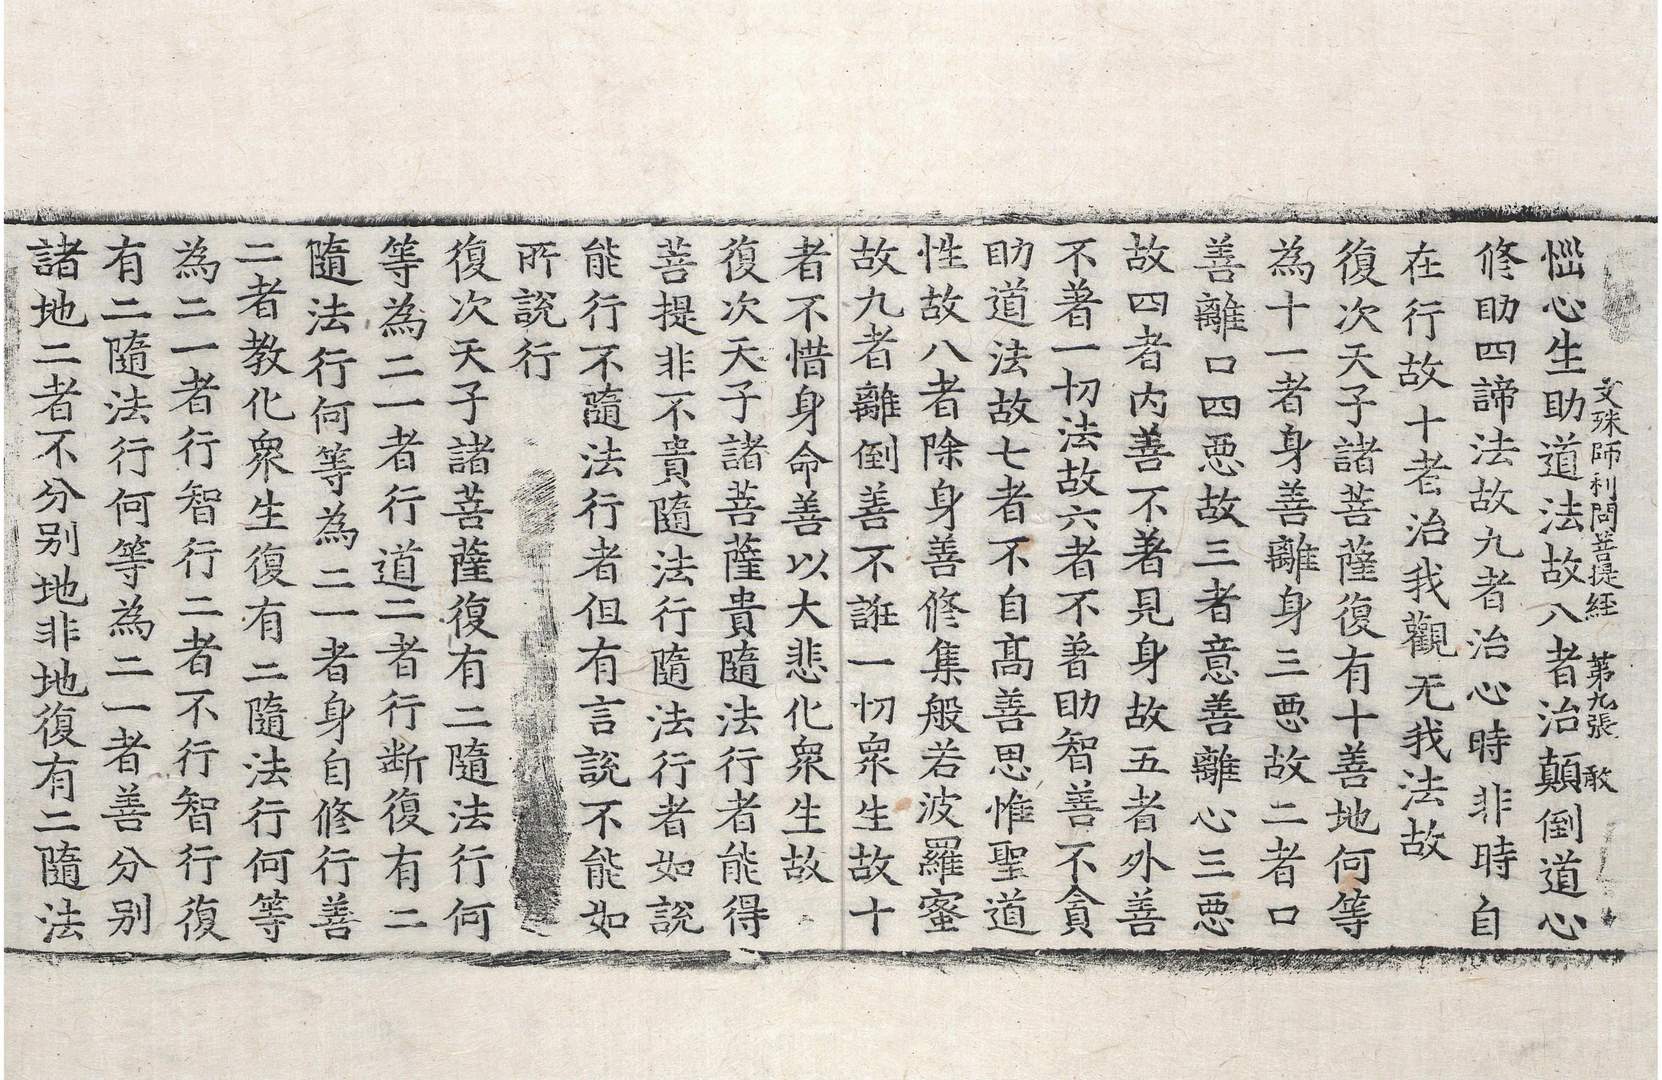 文殊師利問菩提經 第九張 敢
惱心生助道法故八者治顛倒道心
修助四諦法故九者治心時非時自
在行故十者治我觀无我法故
復次天子諸菩薩復有十善地何等
為十一者身善離身三惡故二者口
善離口四惡故三者意善離心三惡
故四者内善不著見身故五者外善
不著一切法故六者不著助智善不貪
助道法故七者不自髙善思惟聖道
性故八者除身善修集般若波羅蜜
故九者離倒善不誑一切衆生故十
者不惜身命善以大悲化衆生故
復次天子諸菩薩貴隨法行者能得
菩提非不貴隨法行隨法行者如說
能行不隨法行者但有言說不能如
所說行
復次天子諸菩薩復有二隨法行何
等為二一者行道二者行断復有二
隨法行何等為二一者身自修行善
二者教化衆生復有二隨法行何等
為二一者行智行二者不行智行復
有二隨法行何等為二一者善分别
諸地二者不分别地非地復有二隨法